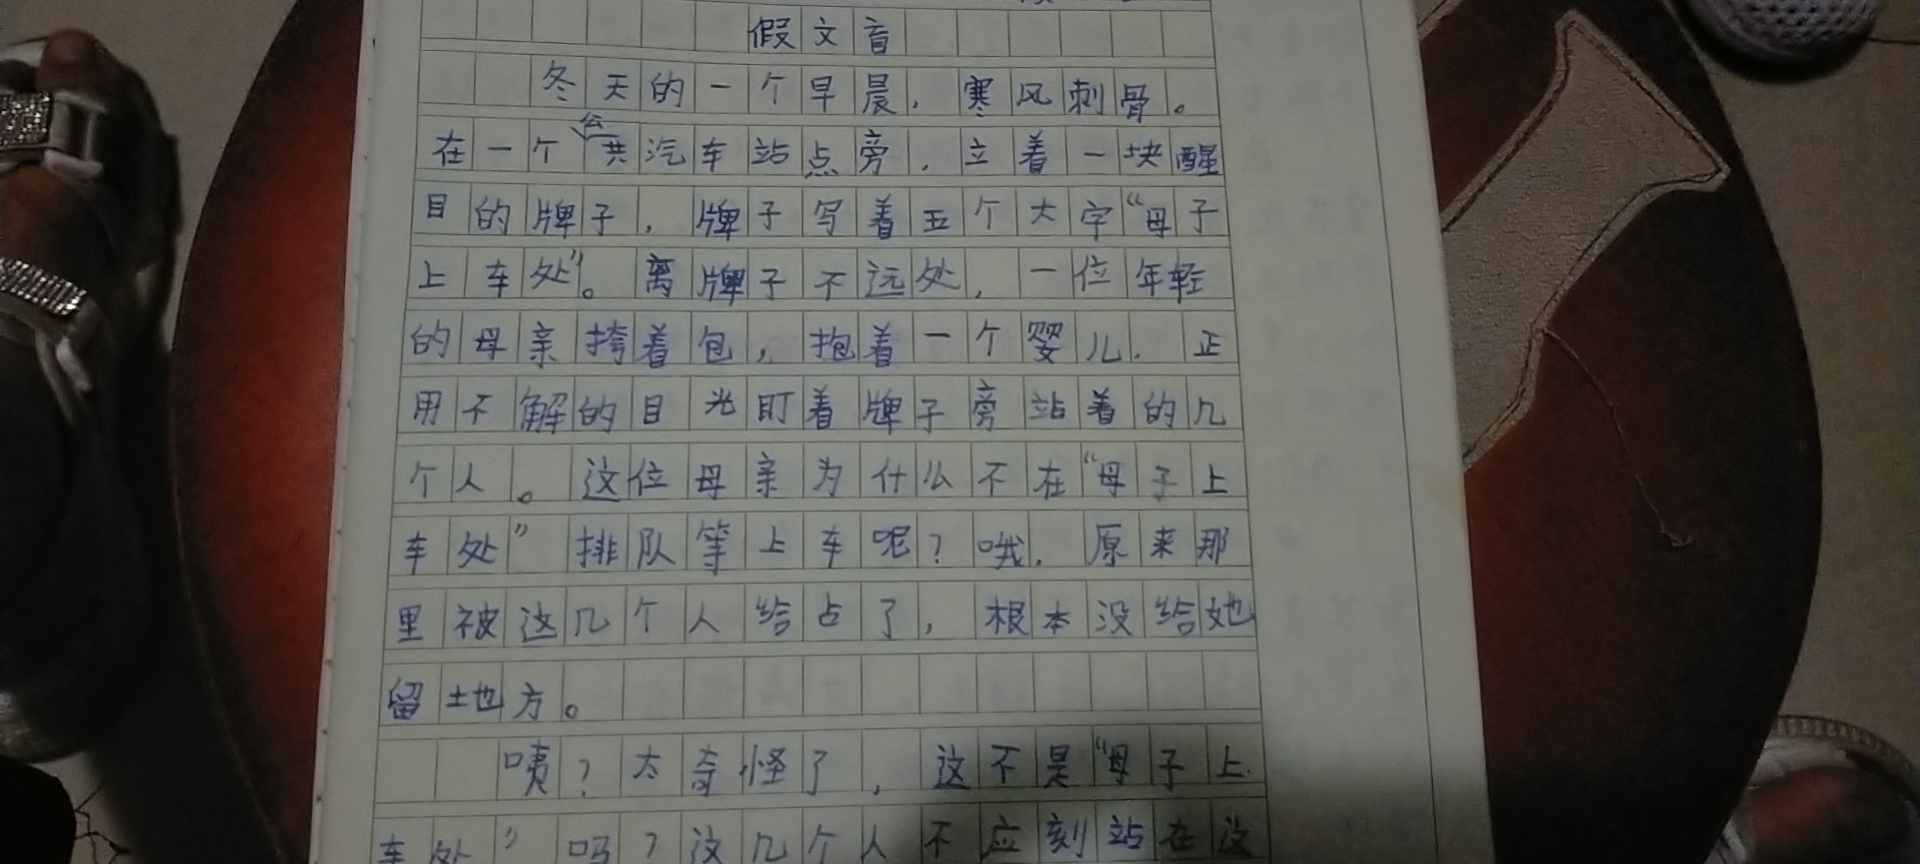 假文盲
冬天的一个早晨，寒风刺骨。
在一个公共汽车站点旁，立着一块醒
目的牌子，牌子写着五个大字“母子
上车处”。离牌子不远处，一位年轻
的母亲挎着包，抱着一个婴儿，正
用不解的目光盯着牌子旁站着的几
个人。这位母亲为什么不在“母子上
车处”排队等上车呢？哦，原来那
里被这几个人给占了，根本没给她
留地方。
咦？太奇怪了，这不是“母子上
车处”吗？这几个人不应刻站在这